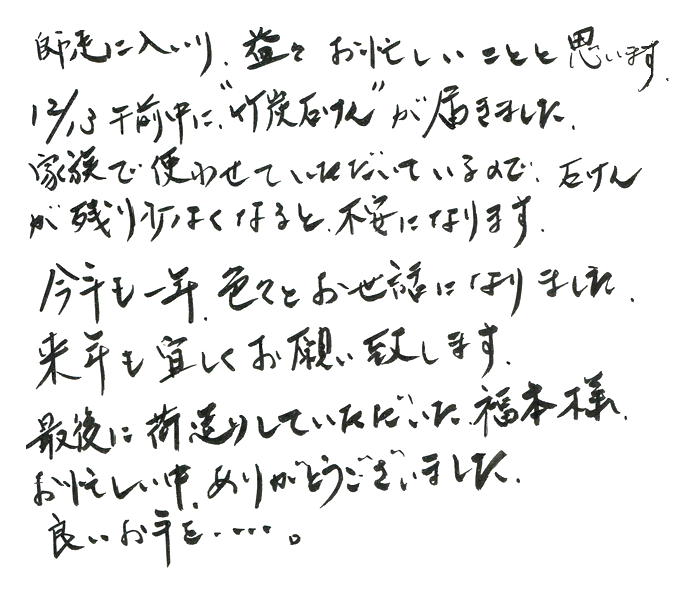 師走に入いり、益々お忙しいことと思います。
12/13午前中に、“竹炭石けん”が届きました。
家族で使わせていただいているので、石けん
が残り少なくなると、不安になります。
今年も一年、色々とお世話になりました。
来年も宜しくお願い致します。
最後に荷造りしていただいた、福本様、
お忙しい中、ありがとうございました。
良いお年を・・・・。